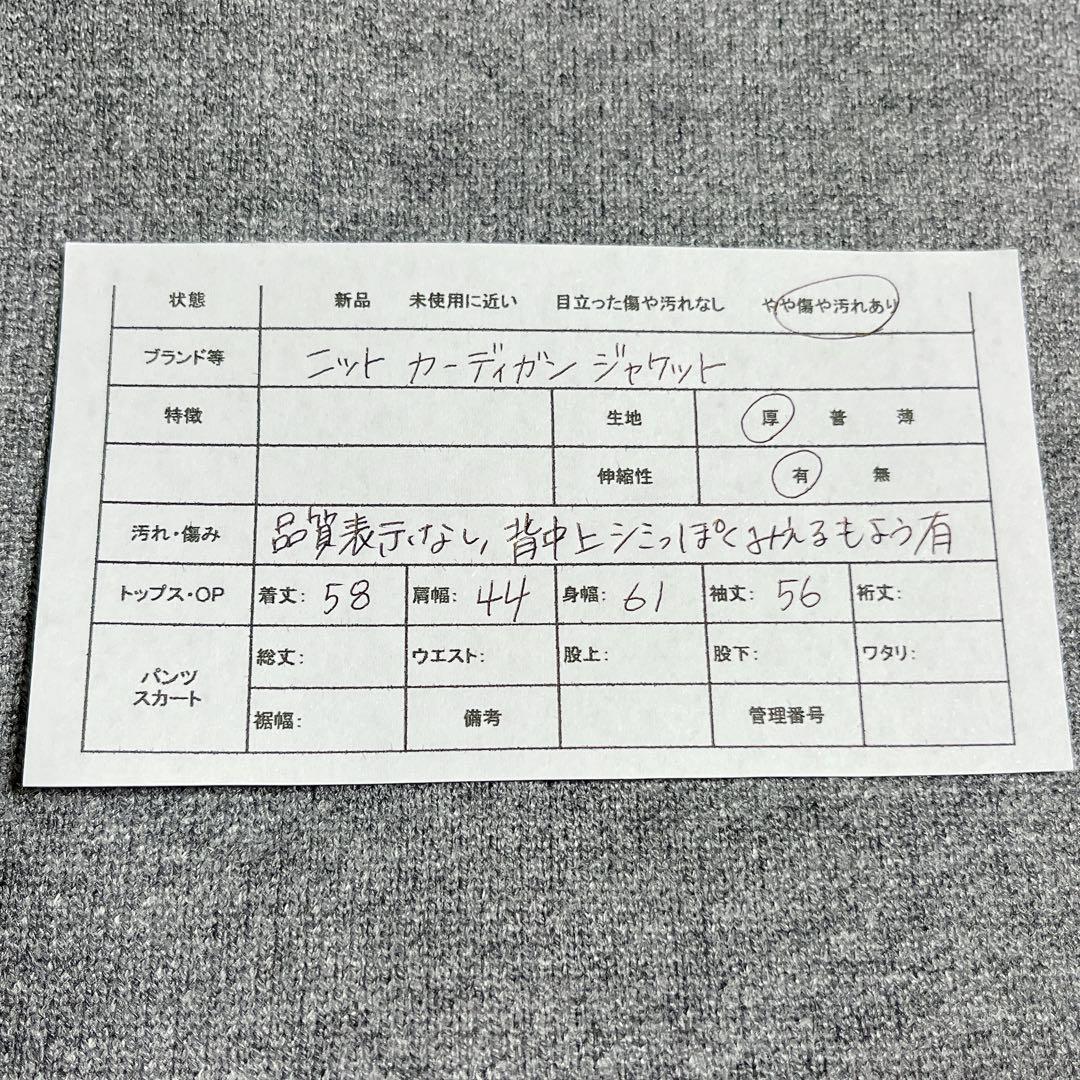 状態 新品 未使用に近い 目立った傷や汚れなし やや傷や汚れあり
ブランド等 ニット カーディガン ジャケット
特徴 生地 厚 普 薄
伸縮性 有 無
汚れ・傷み 品質表示なし、背中上シミっぽくみえるもよう有
トップス・OP 着丈: 58 肩幅: 44 身幅: 61 袖丈: 56 裄丈:
パンツ スカート 総丈: ウエスト: 股上: 股下: ワタリ:
裾幅: 備考 管理番号